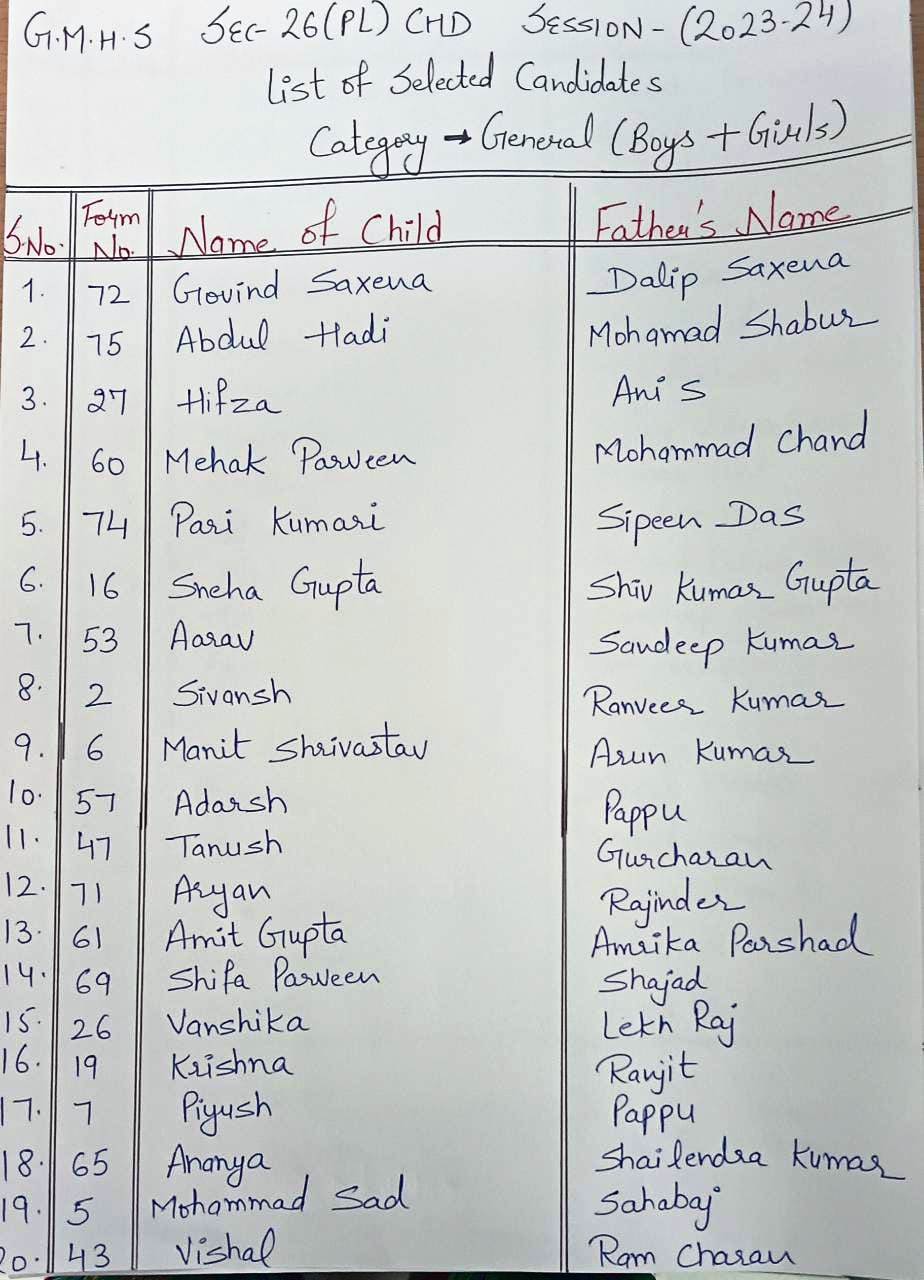 G.M.H.S SEC-26(PL) CHD SESSION-(2023-24)
List of Selected Candidates
Category → General (Boys + Girls)
S.No. Form No. Name of Child Father's Name
1. 72 Govind Saxena Dalip Saxena
2. 75 Abdul Hadi Mohamad Shabur
3. 27 Hifza Anis
4. 60 Mehak Parveen Mohammad Chand
5. 74 Pari Kumari Sipeen Das
6. 16 Sneha Gupta Shiv Kumar Gupta
7. 53 Aarav Sandeep Kumar
8. 2 Sivansh Ranveer Kumar
9. 6 Manit Shrivastav Arun Kumar
10. 57 Adarsh Pappu
11. 47 Tanush Gurcharan
12. 71 Aryan Rajinder
13. 61 Amit Gupta Amrika Parshad
14. 69 Shifa Parveen Shajad
15. 26 Vanshika Lekh Raj
16. 19 Krishna Ranjit
17. 7 Piyush Pappu
18. 65 Ananya Shailendra Kumar
19. 5 Mohammad Sad Sahabaj
20. 43 Vishal Ram Charan